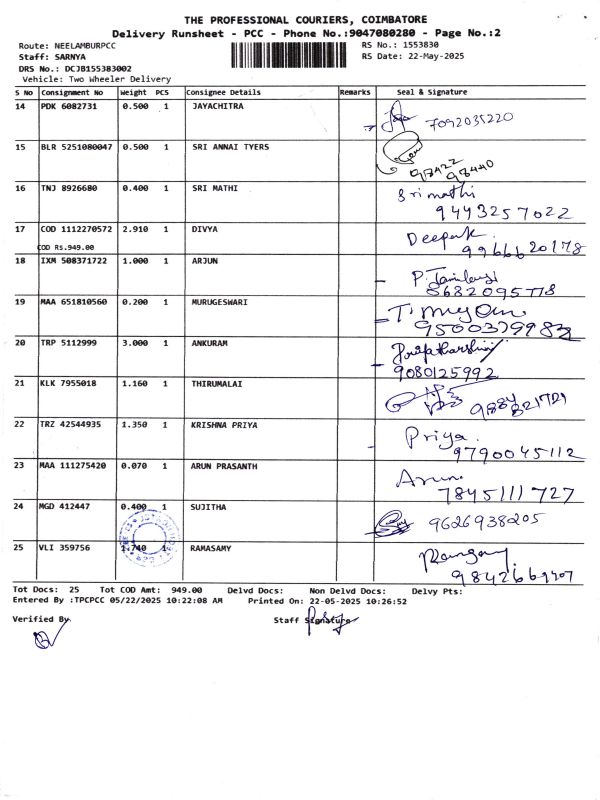 THE PROFESSIONAL COURIERS, COIMBATORE
Delivery Runsheet - PCC - Phone No.:9047080280 - Page No.:2
Route: NEELAMBURPCC RS No.: 1553830
Staff: SARNYA RS Date: 22-May-2025
DRS No.: DCJB155383002
Vehicle: Two Wheeler Delivery
S No Consignment No Weight PCS Consignee Details Remarks Seal & Signature
14 PDK 6082731 0.500 1 JAYACHITRA
7092035220
15 BLR 5251080047 0.500 1 SRI ANNAI TYERS
98422
98440
16 TNJ 8926680 0.400 1 SRI MATHI Sri mathi
9443257022
17 COD 1112270572 2.910 1 DIVYA Deepak
COD Rs.949.00 9966620178
18 IXM 508371722 1.000 1 ARJUN
8682095778
19 MAA 651810560 0.200 1 MURUGESWARI
9500379983
20 TRP 5112999 3.000 1 ANKURAM
9080125992
21 KLK 7955018 1.160 1 THIRUMALAI
22 TRZ 42544935 1.350 1 KRISHNA PRIYA Priya
9790045112
23 MAA 111275420 0.070 1 ARUN PRASANTH Arun
7845111727
24 MGD 412447 0.400 1 SUJITHA 9626938205
25 VLI 359756 1.740 1 RAMASAMY
Tot Docs: 25 Tot COD Amt: 949.00 Delvd Docs: Non Delvd Docs: Delvy Pts:
Entered By :TPCPCC 05/22/2025 10:22:08 AM Printed On: 22-05-2025 10:26:52
Verified By Staff Signature